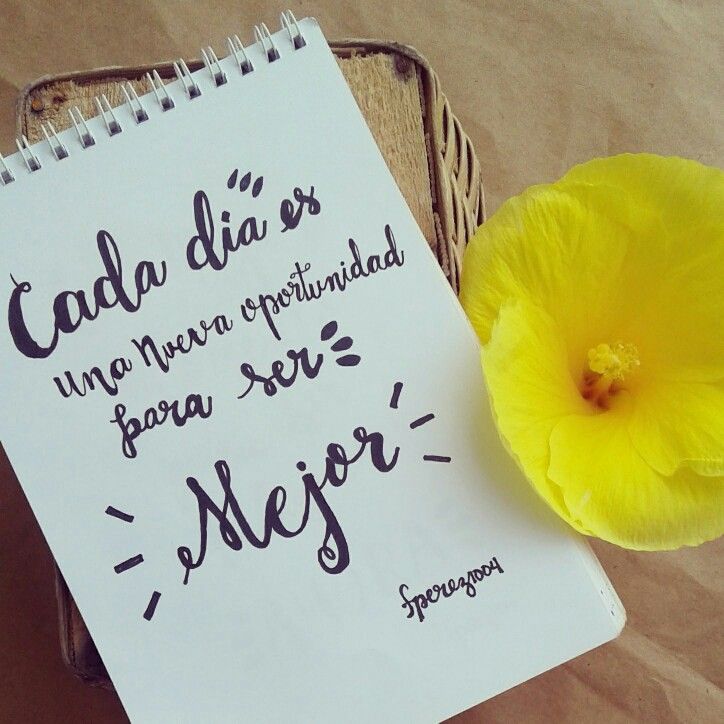 Cada dia es
una nueva oportunidad
para ser
Mejor
fperez1004